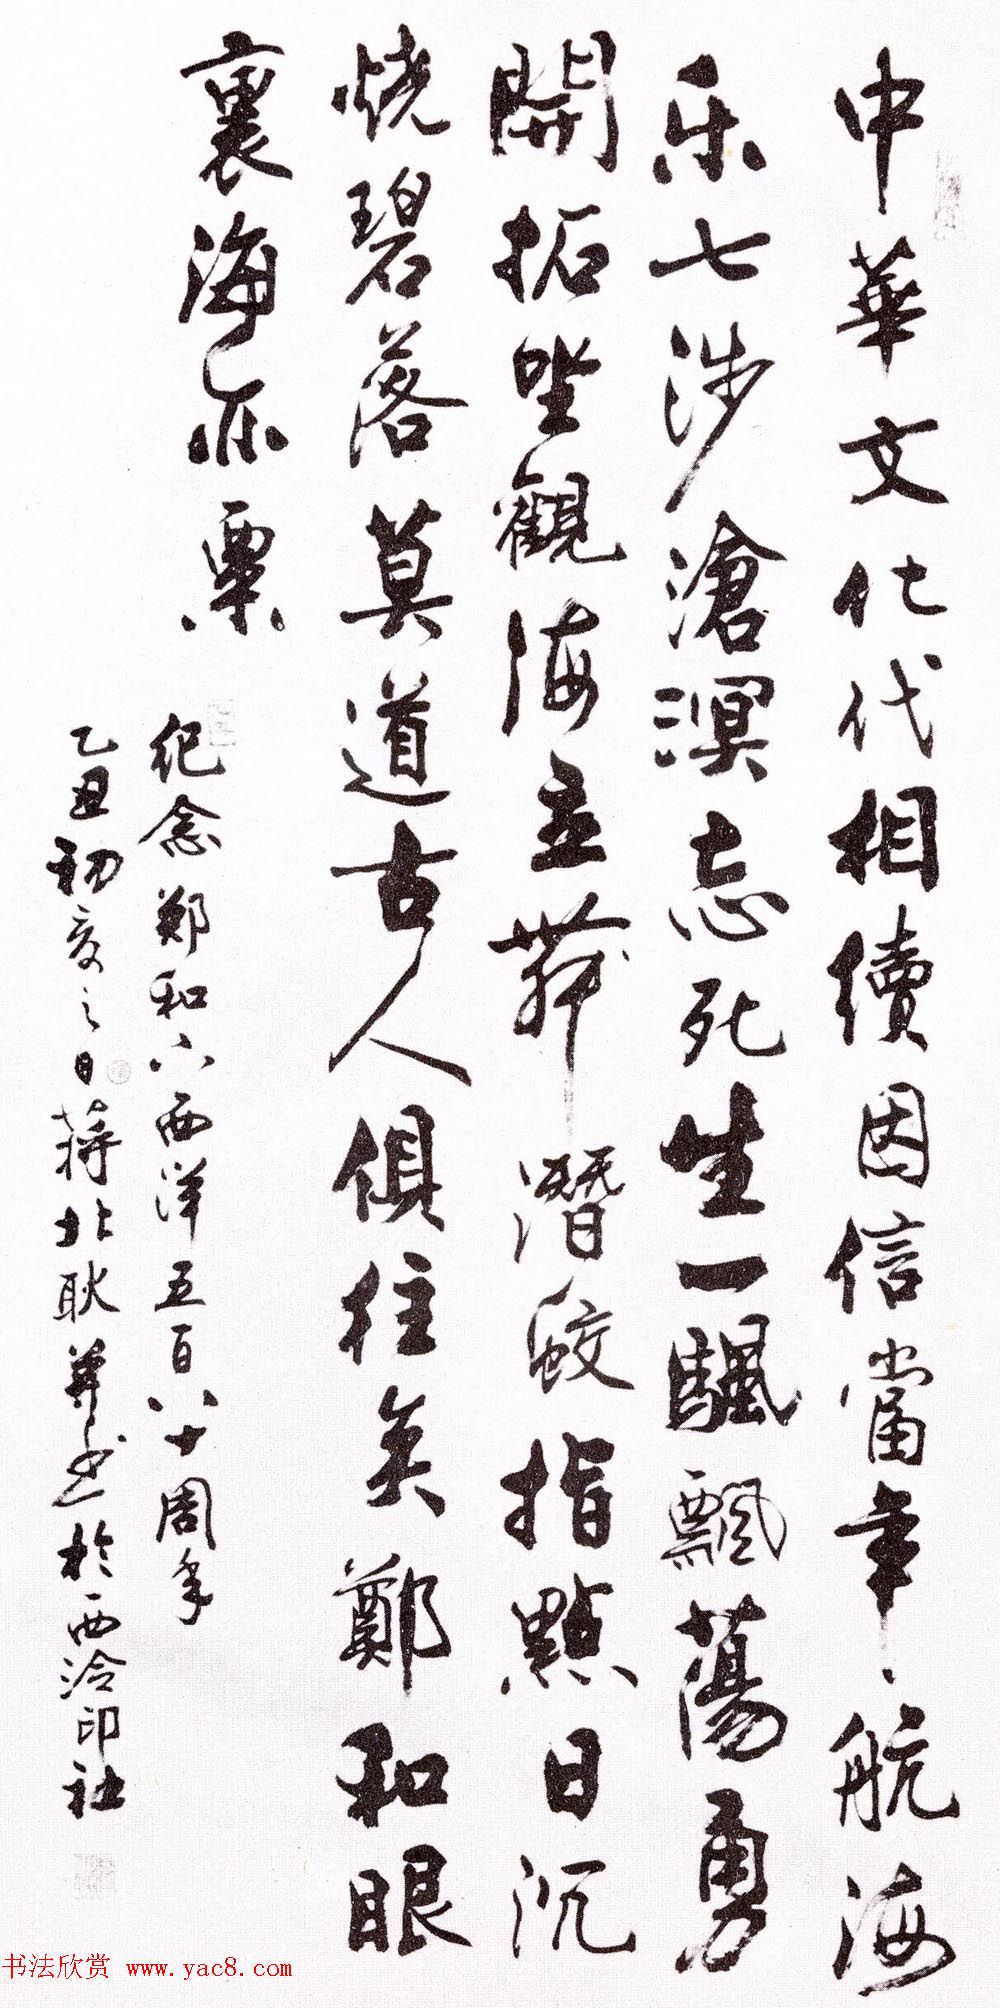 中華文化代相續因信當年航海
乐七涉滄溟忘死生一颿飄蕩勇
開拓坐觀海立群潛蛟指點日沉
燒碧落莫道古人俱往矣鄭和眼
裏海亦粟
纪念鄭和下西洋五百八十周年
乙丑初夏之日蒋北耿并书於西泠印社
书法欣赏 www.yac8.com